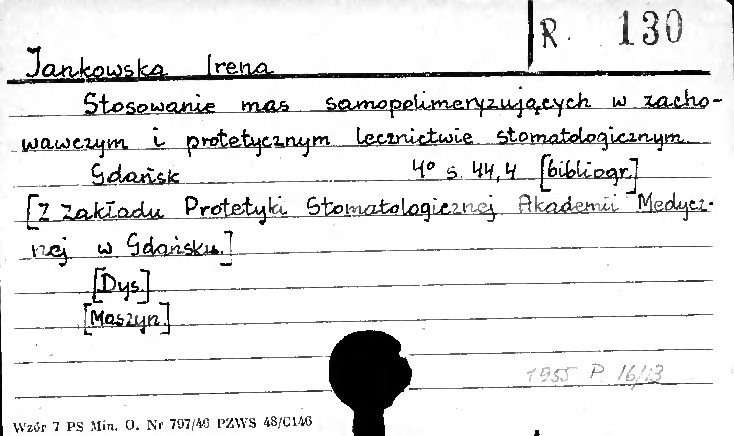 R. 130
Jankowska Irena
Stosowanie mas samopolimeryzujących w zacho-
wawczym i protetycznym lecznictwie stomatologicznym.
Gdańsk 4° s. 44,4 [bibliogr.]
[Z Zakładu Protetyki Stomatologicznej Akademii Medycz-
nej w Gdańsku.]
[Dys.]
[Maszyn.]
1955 P 16/13
Wzór 7 PS Min. O. Nr 797/46 PZWS 48/C146